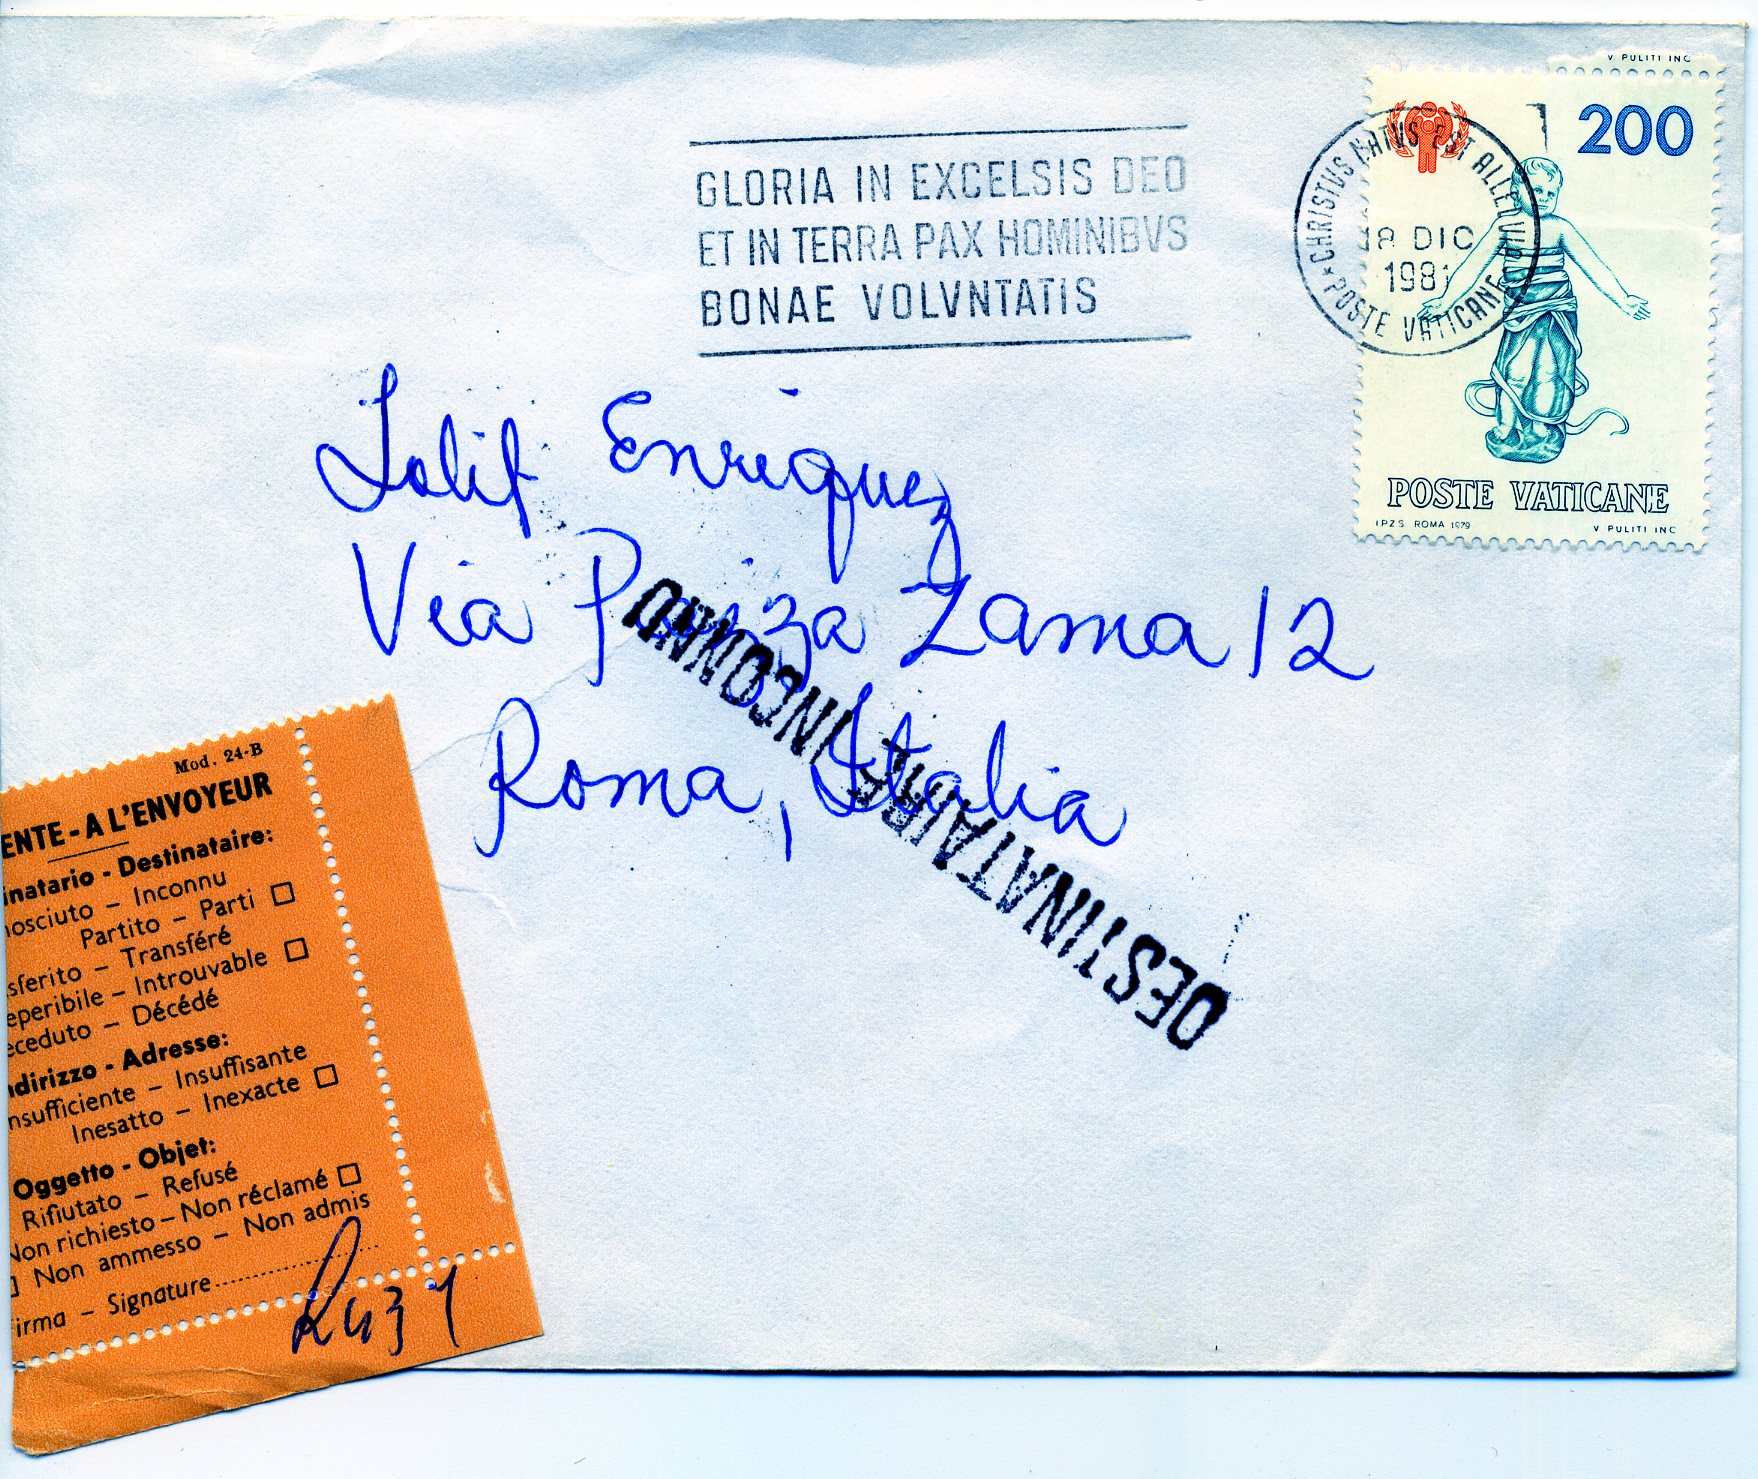 V. PULITI INC
200
CHRISTVS NATVS EST ALLELVIA
18 DIC
1981
* POSTE VATICANE
POSTE VATICANE
I.P.Z.S. ROMA 1979 V. PULITI INC
GLORIA IN EXCELSIS DEO
ET IN TERRA PAX HOMINIBVS
BONAE VOLVNTATIS
Enriquez
Via Panza Zama 12
Roma, Italia
DESTINATAIRE INCONNU
Mod. 24-B
ENTE - A L'ENVOYEUR
inatario - Destinataire:
nosciuto – Inconnu
Partito – Parti
sferito – Transféré
eperibile – Introuvable
eceduto – Décédé
ndirizzo - Adresse:
nsufficiente – Insuffisante
Inesatto – Inexacte
Oggetto - Objet:
Rifiutato – Refusé
Non richiesto – Non réclamé
Non ammesso – Non admis
irma – Signature